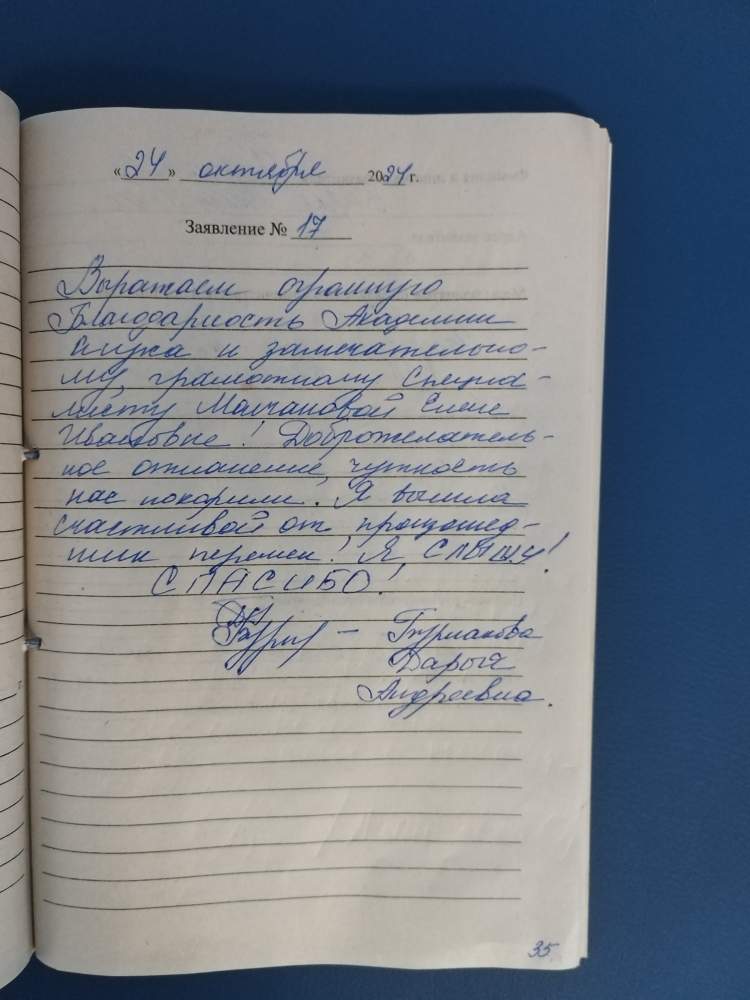 «24» октября 2024 г.
Заявление № 17
Выражаем огромную
Благодарность Академии
слуха и замечательно-
му, грамотному специа-
листу Молчановой Елене
Ивановне! Доброжелатель-
ное отношение, чуткость
нас покорили. Я вышла
счастливой от произошед-
ших перемен! Я СЛЫШУ!
СПАСИБО!
Дарья
Андреевна.
35